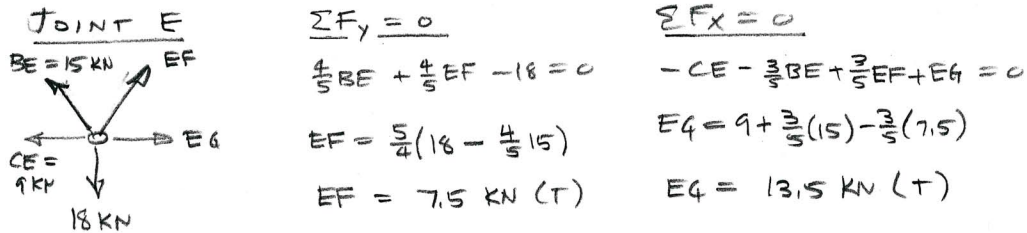 JOINT E
BE = 15 KN
EF
EG
CE =
9 KN
18 KN
ΣFy = 0
4/5 BE + 4/5 EF - 18 = 0
EF = 5/4 (18 - 4/5 15)
EF = 7.5 KN (T)
ΣFx = 0
- CE - 3/5 BE + 3/5 EF + EG = 0
EG = 9 + 3/5 (15) - 3/5 (7.5)
EG = 13.5 KN (T)